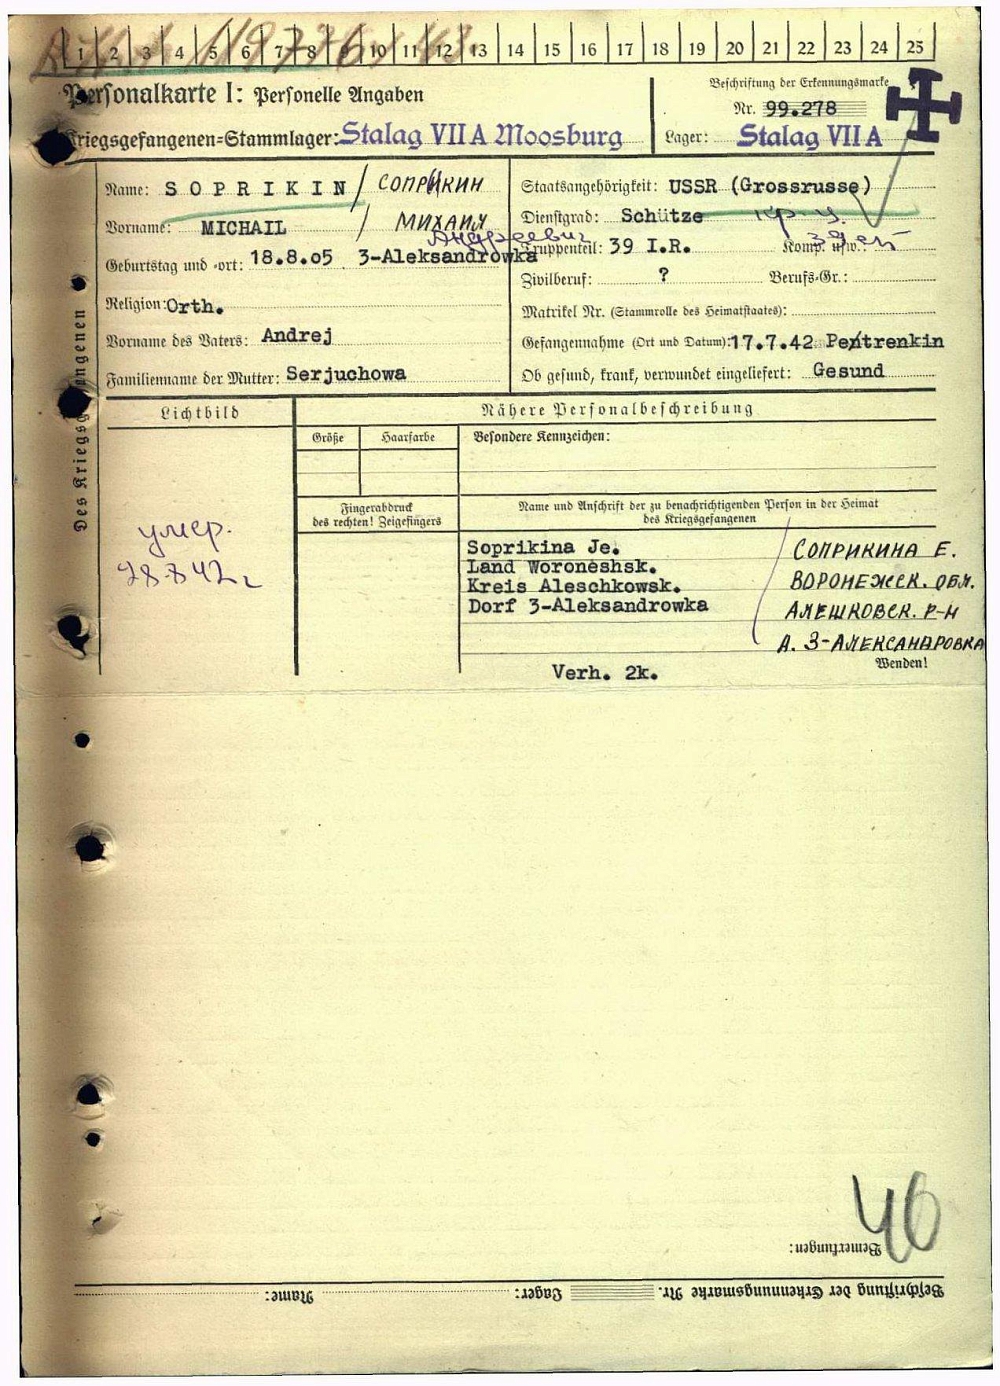 1 2 3 4 5 6 7 8 9 10 11 12 13 14 15 16 17 18 19 20 21 22 23 24 25
Personalkarte I: Personelle Angaben
Kriegsgefangenen=Stammlager: Stalag VII A Moosburg
Beschriftung der Erkennungsmarke
Nr. 99.278
Lager: Stalag VII A
Des Kriegsgefangenen
Name: SOPRIKIN / СОПРИКИН
Vorname: MICHAIL / МИХАИЛ
Андреевич
Geburtstag und -ort: 18.8.05 3-Aleksandrowka
Religion: Orth.
Vorname des Vaters: Andrej
Familienname der Mutter: Serjuchowa
Staatsangehörigkeit: USSR (Grossrusse)
Dienstgrad: Schütze
Truppenteil: 39 I.R. Komp. usw.:
Zivilberuf: ? Berufs-Gr.:
Matrikel Nr. (Stammrolle des Heimatstaates):
Gefangennahme (Ort und Datum): 17.7.42 Pentrenkin
Ob gesund, krank, verwundet eingeliefert: Gesund
Lichtbild
Nähere Personalbeschreibung
Größe Haarfarbe Besondere Kennzeichen:
Fingerabdruck
des rechten! Zeigefingers
Name und Anschrift der zu benachrichtigenden Person in der Heimat
des Kriegsgefangenen
умер.
Soprikina Je.
Land Woroneshsk.
Kreis Aleschkowsk.
Dorf 3-Aleksandrowka
СОПРИКИНА Е.
ВОРОНЕЖСК. ОБЛ.
АЛЕШКОВСК. Р-Н
Д. 3-АЛЕКСАНДРОВКА
Wenden!
Verh. 2k.
40
Bemerkungen:
Beschriftung der Erkennungsmarke Nr. Lager: Name: